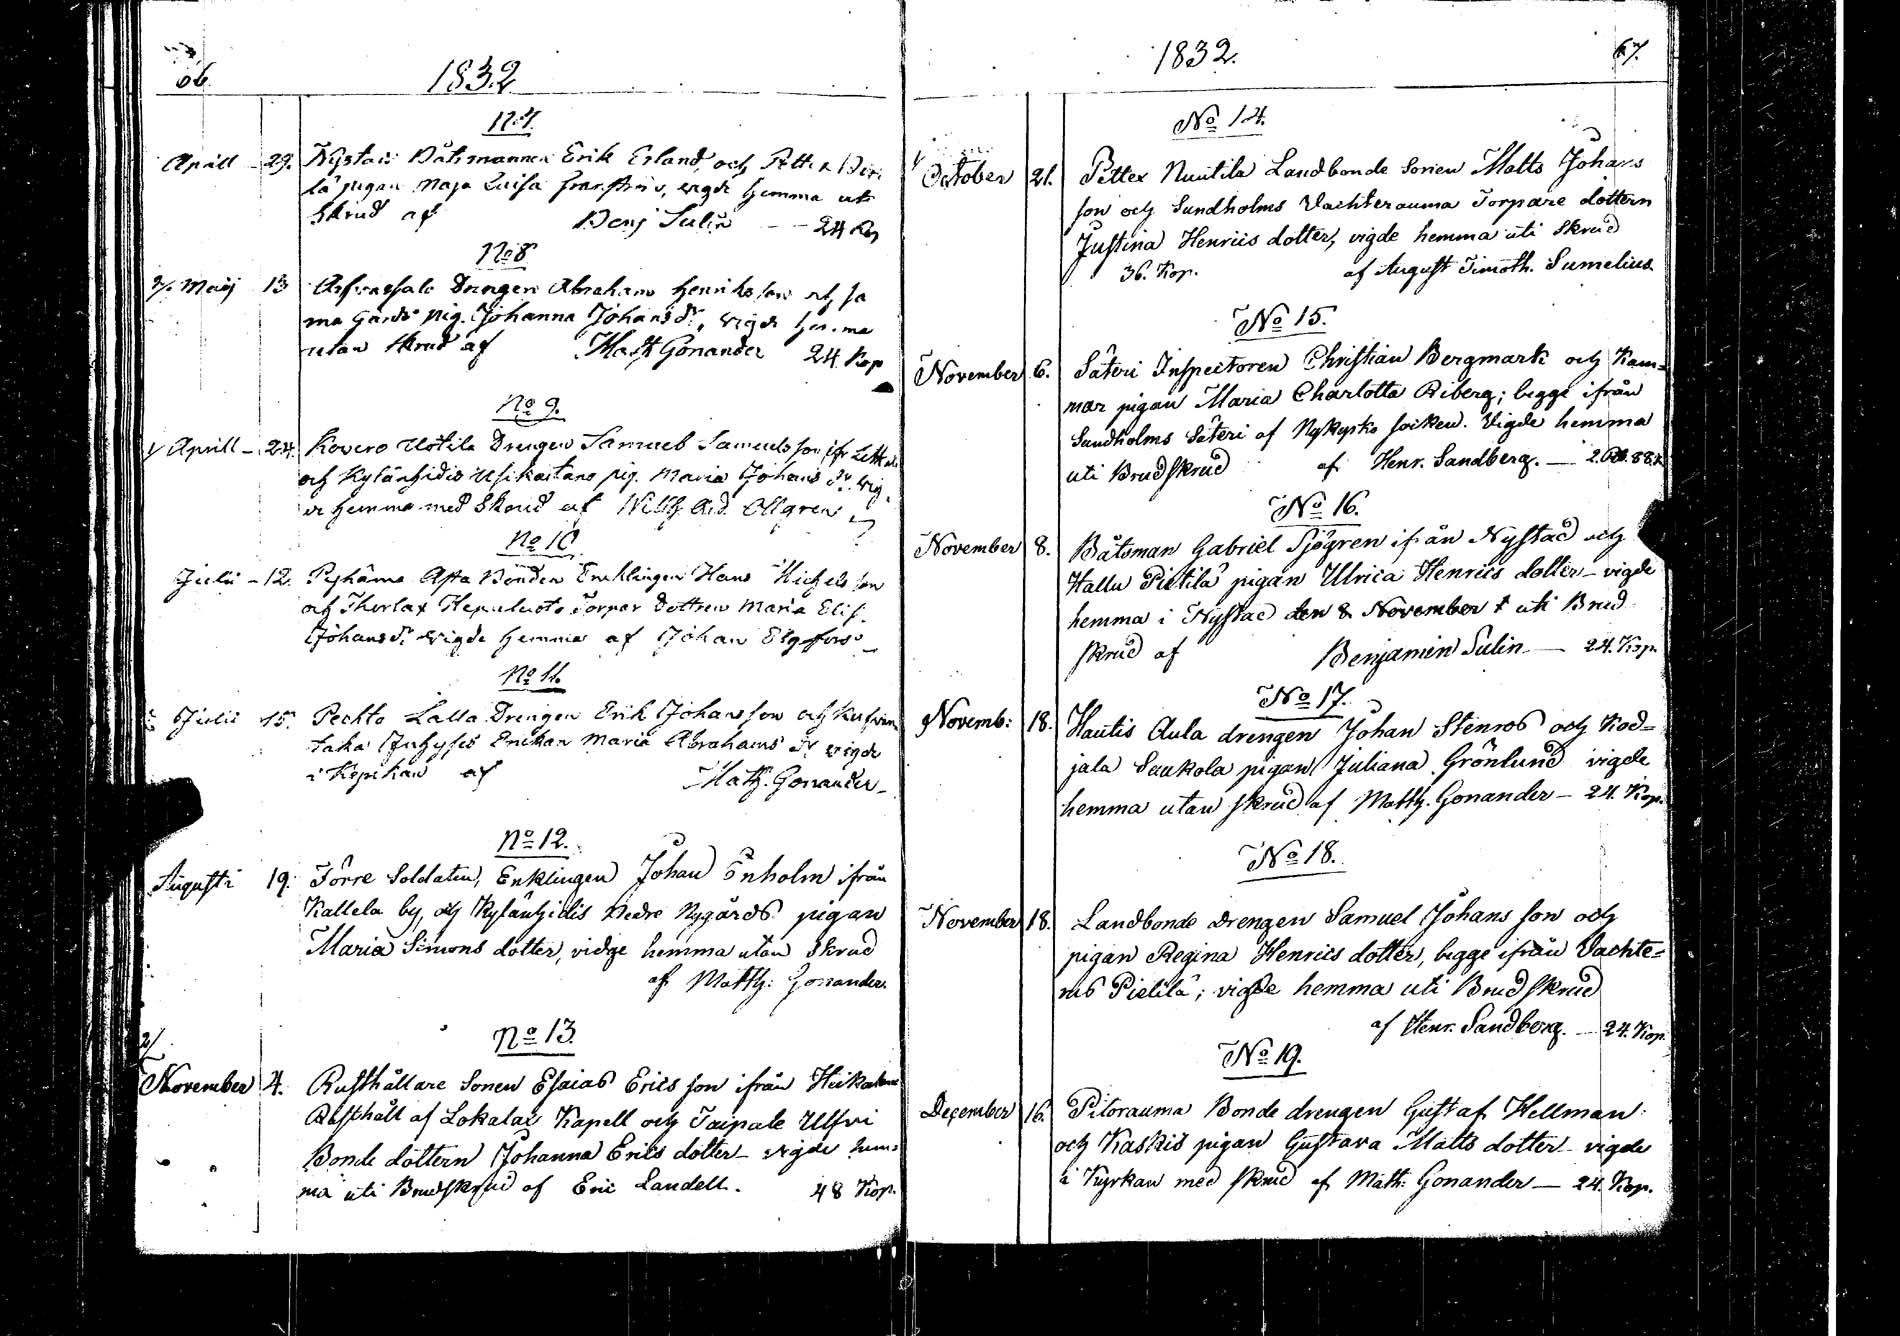 66. 1832
No 7.
Aprill - 29. Nystads Båtsmannen Erik Erland, och Pett
lä pigan Maja Luisa, vigde hemma uti
Skrud af Benj Sulin - - 24 Kop
No 8
Maij 13 Drengen Abraham Henriksson och sa
ma Gårds pig. Johanna Johansdr, vigde hemma
utan skrud af Math Gonander 24 Kop
No 9.
Aprill - 24. Kovero Uotila Drengen Samuel Samuelsson
och Kylänhidis Usikartano pig. Maria Johans dr. vig.
de hemma med Skrud af Ollgren
No 10
Julii - 12. Pyhäma Asta Bonden Enklingen Hans Michels son
och Thorlax Torpar dottren Maria Elis.
Johansdr. vigde hemma af Johan Elgfors
No 11.
Julii 15. Pechto Lalla Drengen Erik Johansson och
Enckan Maria Abrahams dr vigde
i Kyrckan af Math. Gonander
No 12.
Augusti 19. Förre Soldaten, Enklingen Johan Enholm ifrån
Kallela by, och Kylänhidis Nedre Nygårds pigan
Maria Simons dotter, vidge hemma utan Skrud
af Matth: Gonander.
No 13.
November 4. Rusthållare Sonen Esaias Erics son ifrån
Rusthåll af Lokalax Kapell och Taipale Ulfvi
Bonde dottern Johanna Erics dotter - vigde hem=
ma uti Brudskrud af Eric Landell. 48 Kop.
1832. 67.
No 14.
October 21. Petter Nuutila Landbonde Sonen Matts Johans
son och Sundholms Vachterauma Torpare dottern
Justina Henrics dotter, vigde hemma uti Skrud
36. Kop. af August Timoth. Sumelius.
No 15.
November 6. Säteri Inspectoren Christian Bergmark och Kam=
mar pigan Maria Charlotta Riberg; begge ifrån
Sundholms Säteri af Nykyrko socken. Vigde hemma
uti Brudskrud af Henr. Sandberg. - 2. 88.K
No 16.
November 8. Båtsman Gabriel Sjögren ifrån Nystad och
Hallu Pietilä pigan Ulrica Henrics dotter - vigde
hemma i Nystad den 8 November uti Brud
skrud af Benjamin Sulin - 24. Kop.
No 17.
Novemb: 18. Hautis Aula drengen Johan Stenros och Kod=
jala Saukola pigan Juliana Grönlund vigde
hemma utan skrud af Matth. Gonander - 24. Kop.
No 18.
November 18. Landbonde drengen Samuel Johans son och
pigan Regina Henrics dotter, begge ifrån Vachte=
ms Pietilä; vigde hemma uti Brudskrud
af Henr. Sandberg. - 24. Kop.
No 19.
December 16. Pitorauma Bonde drengen Gustaf Hellman
och Kaskis pigan Gustava Matts dotter - vigde
i Kyrkan med skrud af Math: Gonander - 24. Kop.